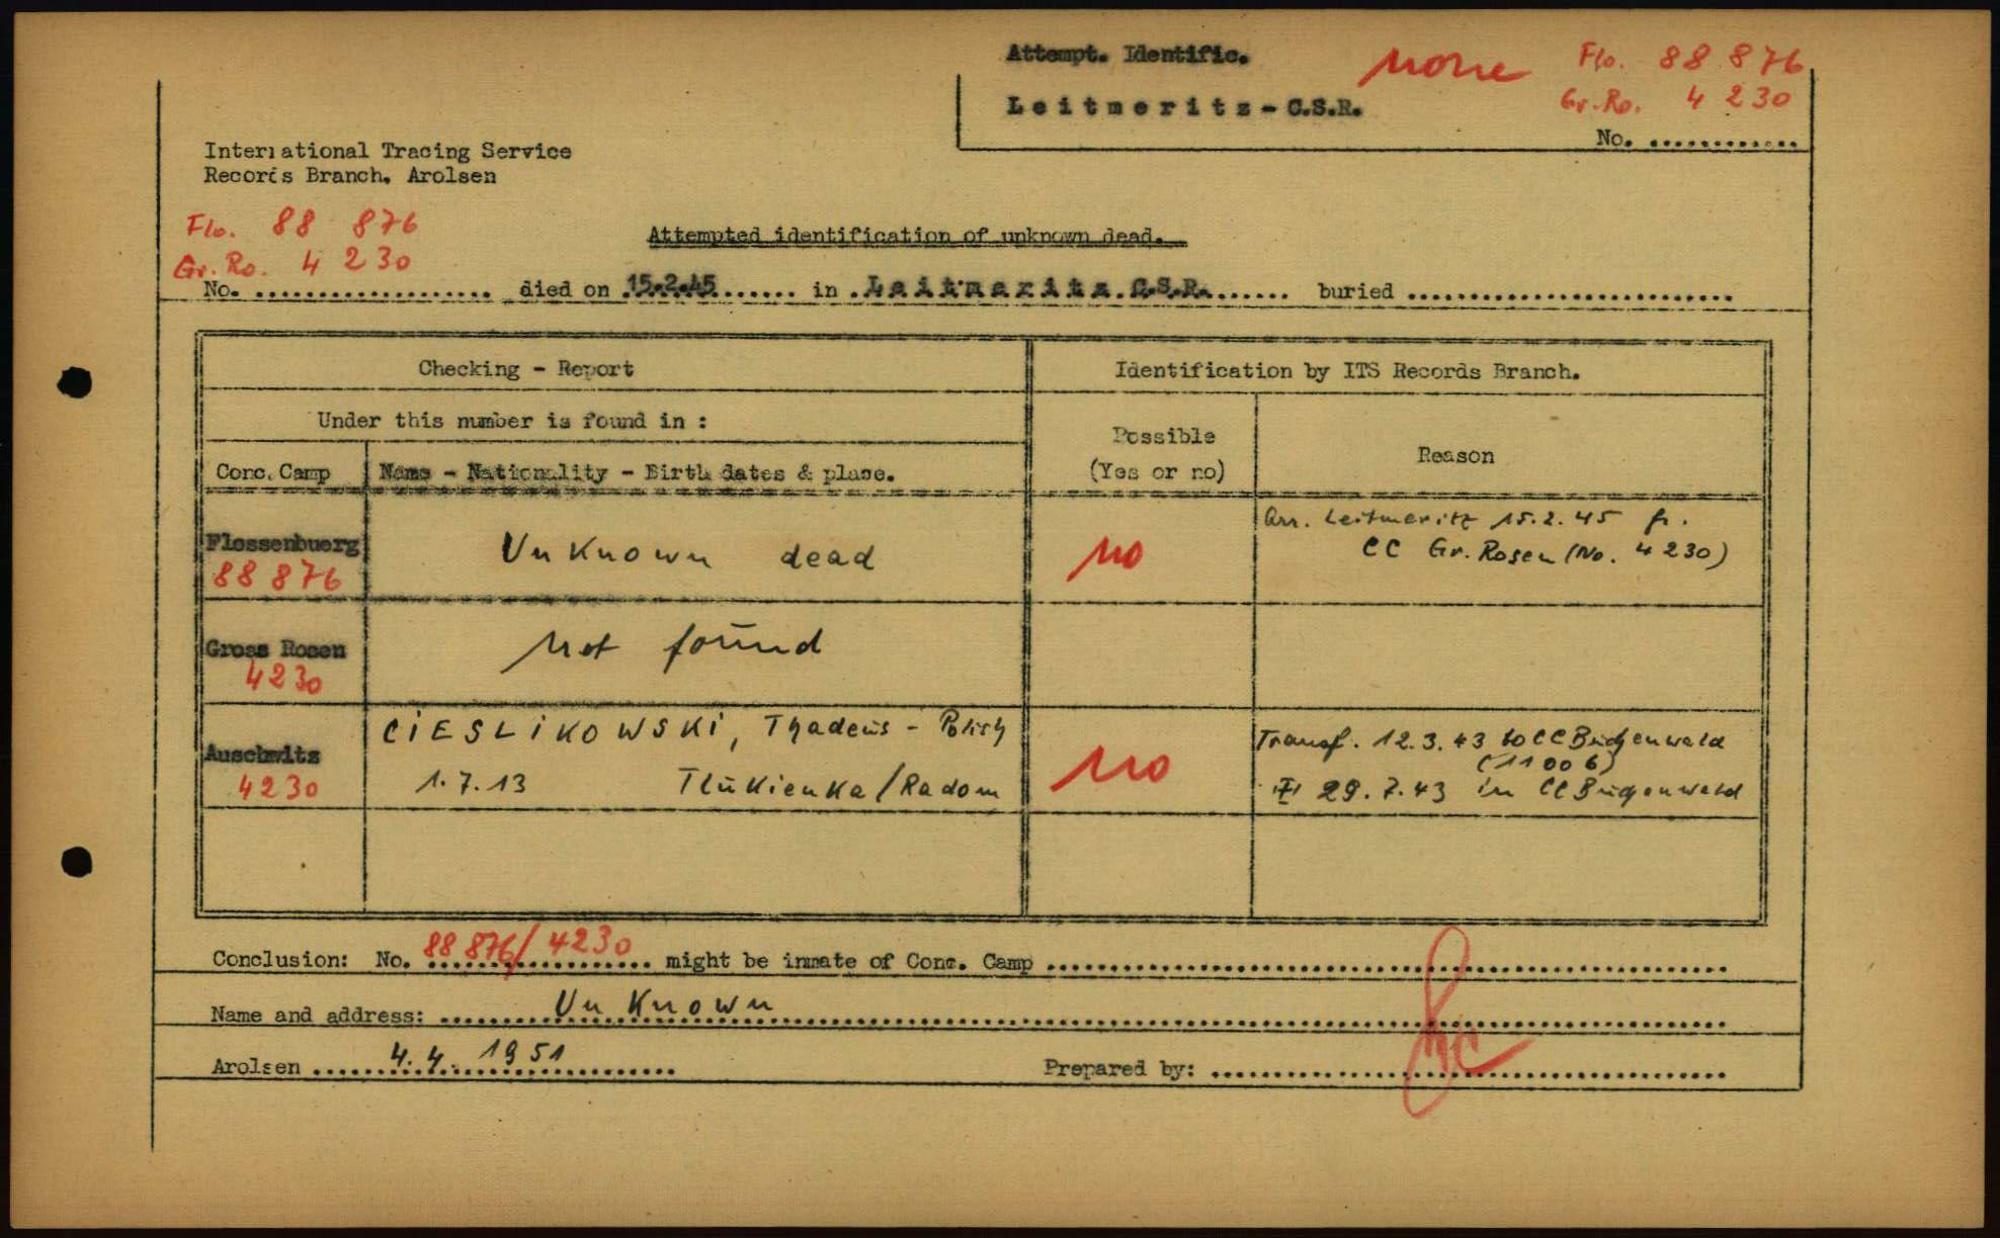 Attempt. Identific.
none
Flo. 88 876
Leitmeritz - C.S.R.
Gr.Ro. 4 230
No. ............
International Tracing Service
Records Branch. Arolsen
Flo. 88 876
Gr. Ro. 4 230
Attempted identification of unknown dead.
No. .................... died on 15.2.45 ....... in .Leitmeritz C.S.R. ...... buried ..........................
Checking - Report
Identification by ITS Records Branch.
Under this number is found in :
Possible
(Yes or no)
Reason
Conc. Camp
Name - Nationality - Birth dates & place.
Flossenbuerg
88 876
Unknown dead
no
Arr. Leitmeritz 15.2.45 fr.
CC Gr. Rosen (No. 4 230)
Gross Rosen
4230
Not found
Auschwitz
4230
CIESLIKOWSKI, Thadeus - Polish
1.7.13 Tlukienka/Radom
no
Transf. 12.3.43 to CC Buchenwald
(11006)
29.7.43 in CC Buchenwald
Conclusion: No. 88 876/4230 might be inmate of Conc. Camp ..........................
Name and address: Unknown ..........................
Arolsen 4.4. 1951
Prepared by: ..........................